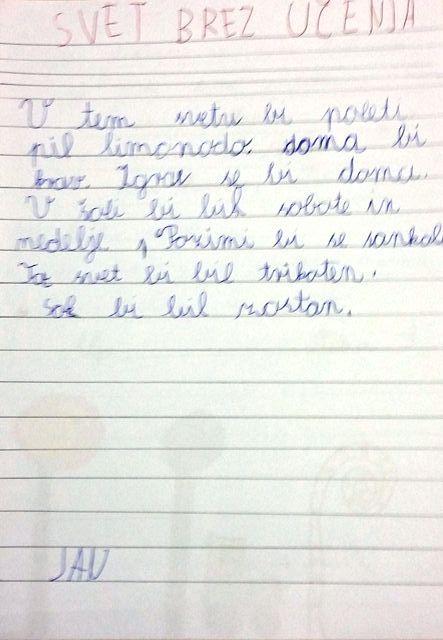 SVET BREZ UČENJA
V tem svetu bi poleti
pil limonodo. doma bi
Igral se bi doma.
V šoli bi bil sobote in
nedelje, Pozimi bi se sankal
Ta svet bi bil trikoten.
Sok bi bil zastonj.
JAN